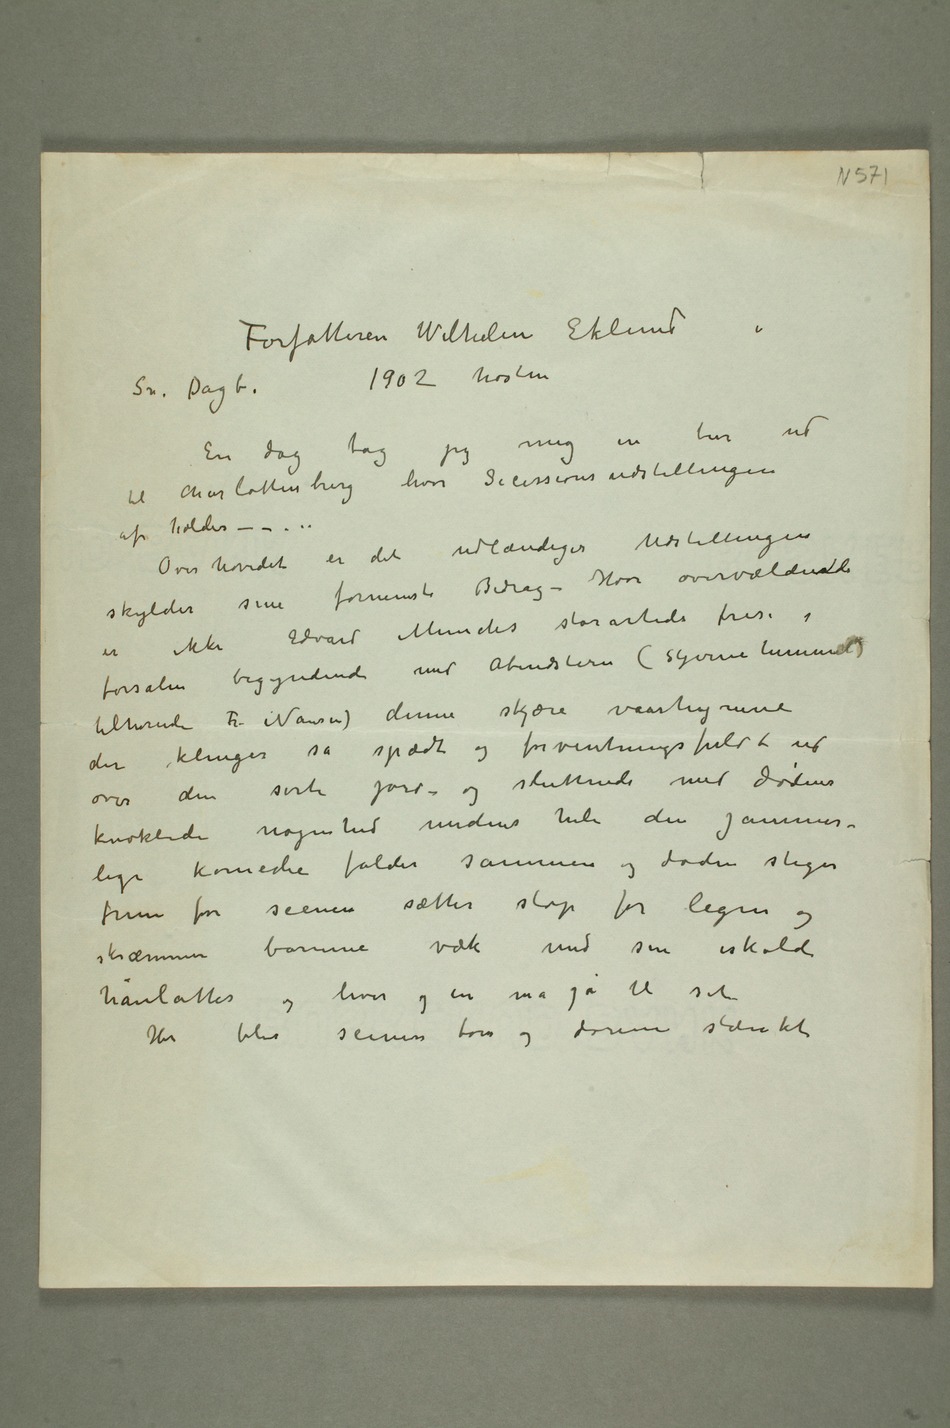 N 571
Forfatteren Wilhelm Eklund i
Sv. Dagb. 1902 hosten
En dag tog jeg mig en tur ud
til Charlottenburg hvor Secessionsudstillingen
af holdes – – . ..
Over hovedet er det udlændiger Udstillingen
skylder sine fornemste Bidrag – Hvor overvældende
er ikke Edvard Munchs storartede frise i
forsalen begyndende med Abendstern (Stjernehimmel)
tilhørende Fr. Nansen) denne skjære vaarhymne
der klinger så spædt og forventningsfuldt ud
over den sorte jord – og sluttende med dødens
knoklede nøgenhed medens hele den jammer-
lige komedie falder sammen og døden stiger
frem for scenen sætter stop for legen og
skræmmer børnene væk med sin iskolde
hånlatter og hver og en må gå til sit
Her blir scenen tom og dørene stænkt